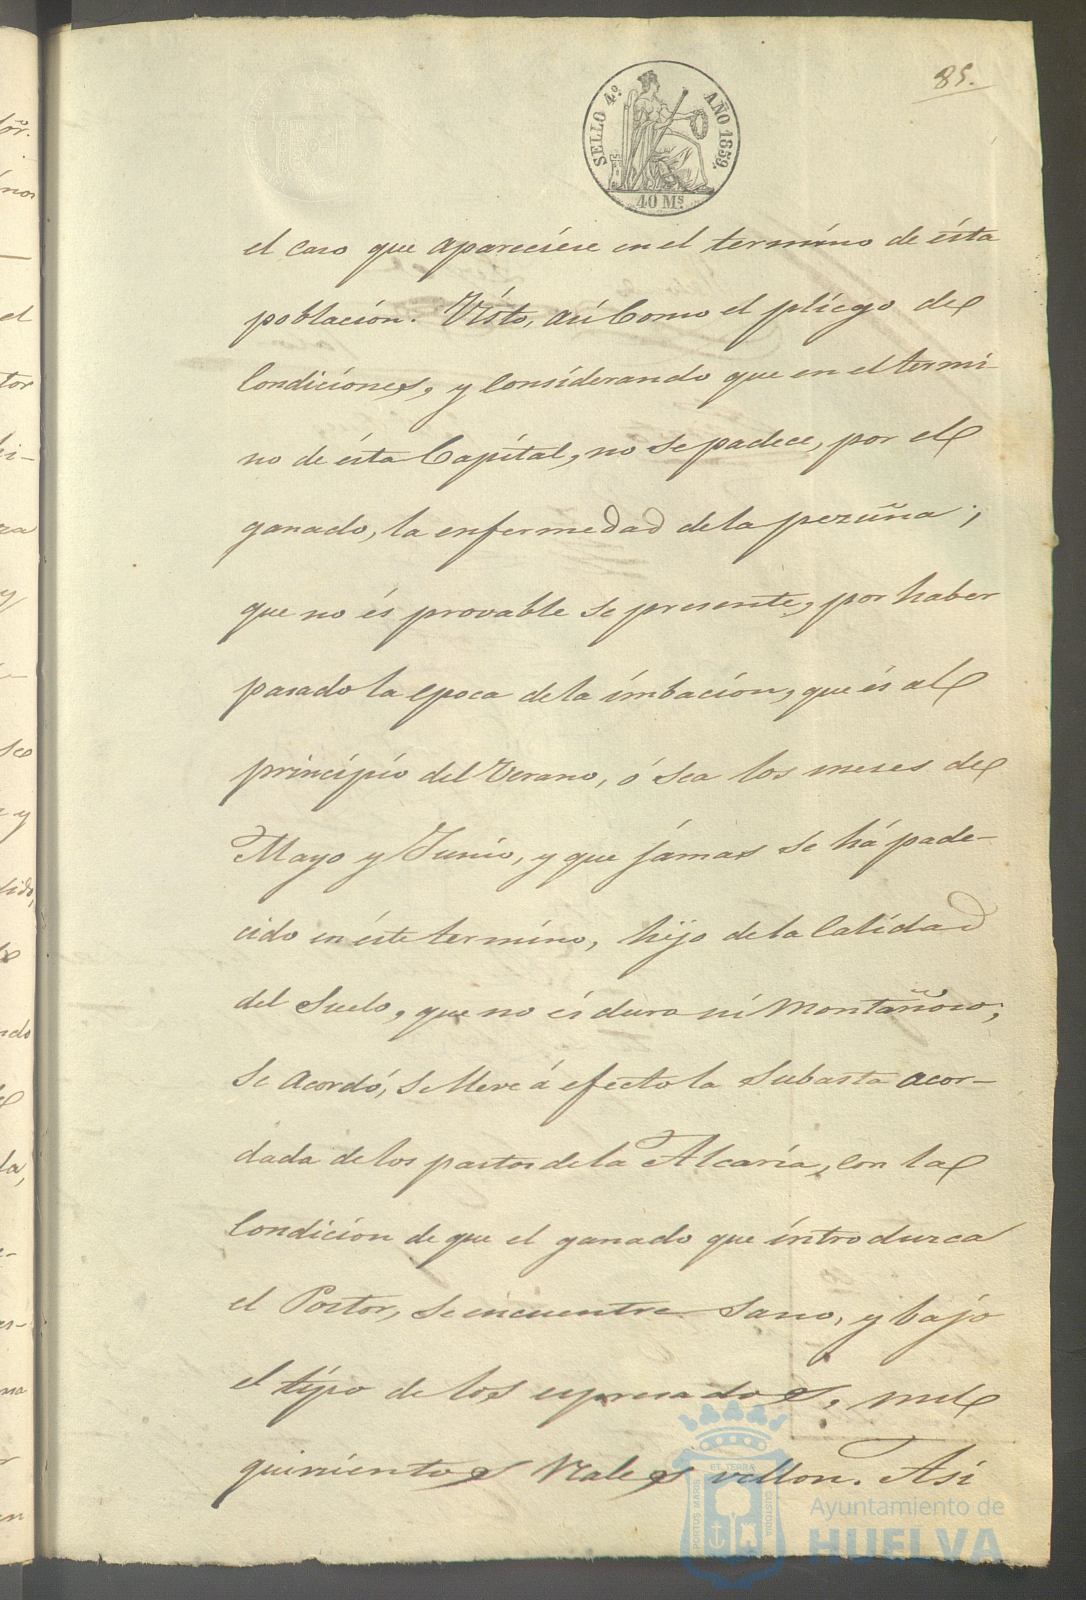 85.
SELLO 4.º AÑO 1859.
40 Ms.
el caso que apareciese en el termino de ésta
poblacion. Visto, asi Como el pliego de
Condiciones, y Considerando que en el termi-
no de ésta Capital, no se padece, por el
ganado, la enfermedad de la pezuña;
que no és provable se presente, por haber
pasado la epoca de la imbacion, que és al
principio del Verano, ó sea los meses de
Mayo y Junio, y que jámas se há pade-
cido en éste termino, hijo de la Calidad
del Suelo, que no és duro ni Montañoso;
Se Acordó, se lleve á efecto la Subasta acor-
dada de los pastos de la Alcaria, con la
Condicion de que el ganado que introduzca
el Postor, se encuentre Sano, y bajo
el tipo de los espresados, mil
quinientos Reales vellon. Asi
PORTUS MARIS ET TERRÆ CUSTODIA
Ayuntamiento de
HUELVA